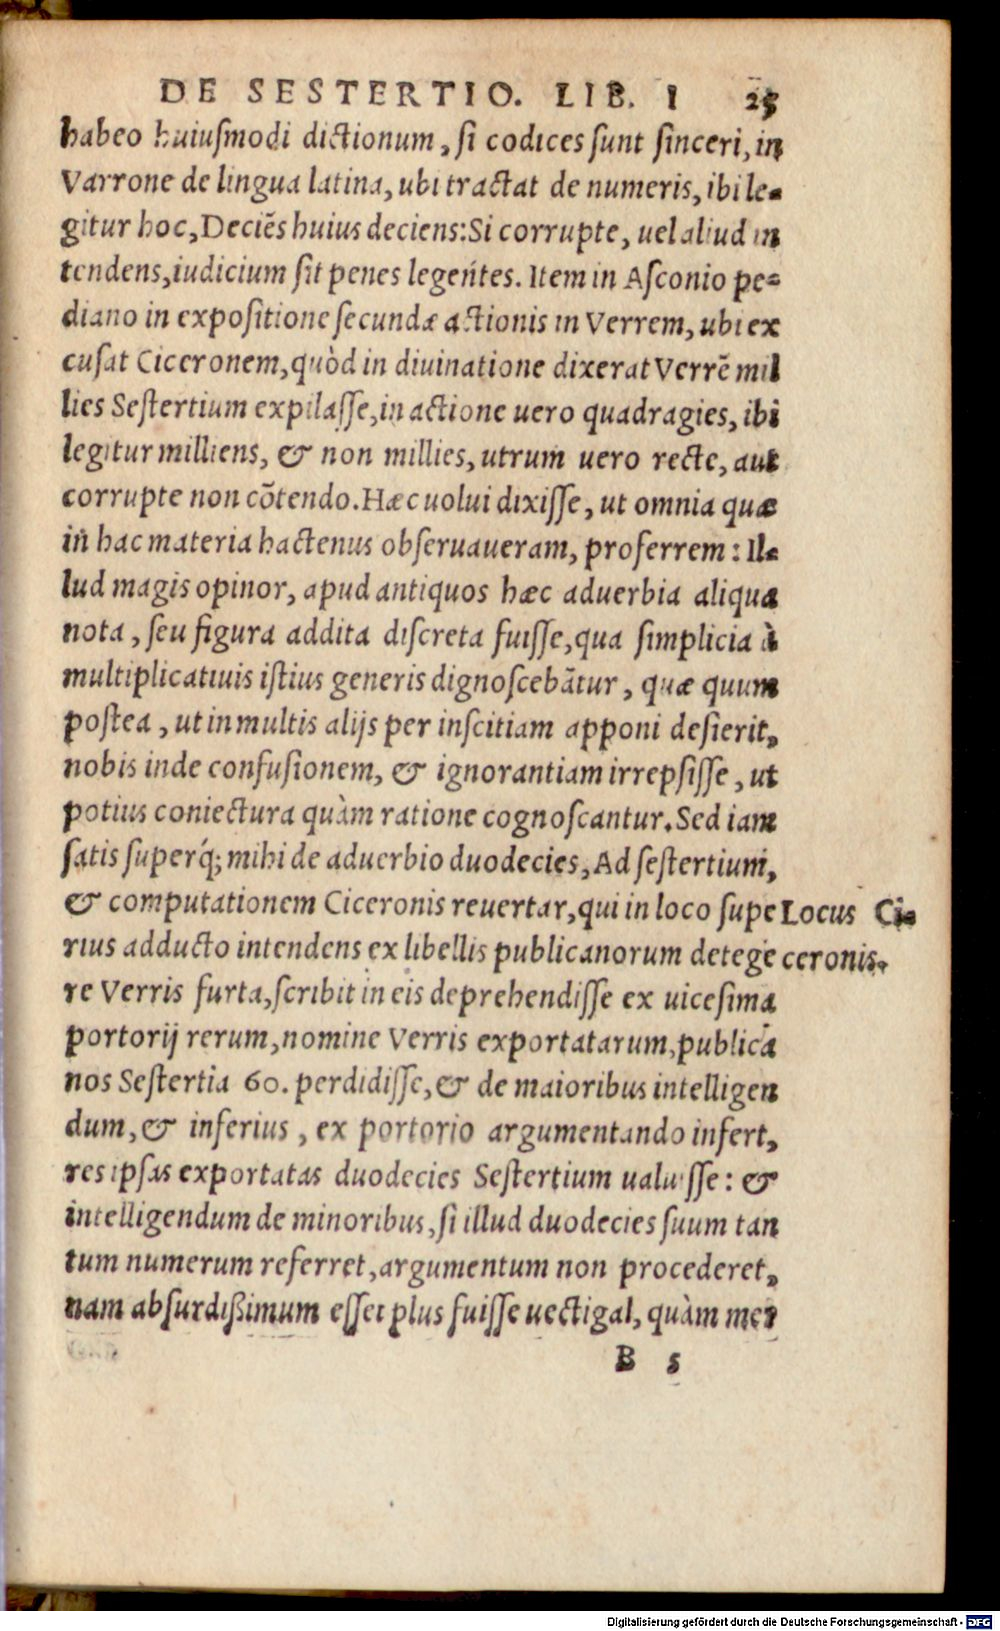 DE SESTERTIO. LIB. I 25
habeo huiusmodi dictionum, si codices sunt sinceri, in
Varrone de lingua latina, ubi tractat de numeris, ibi le-
gitur hoc, Deciẽs huius deciens: Si corrupte, uel aliud in
tendens, iudicium sit penes legentes. Item in Asconio pe-
diano in expositione secundæ actionis in Verrem, ubi ex
cusat Ciceronem, quòd in diuinatione dixerat Verrẽ mil
lies Sestertium expilasse, in actione uero quadragies, ibi
legitur milliens, & non millies, utrum uero recte, aut
corrupte non cõtendo. Hæc uolui dixisse, ut omnia quæ
in hac materia hactenus obseruaueram, proferrem: Il-
lud magis opinor, apud antiquos hæc aduerbia aliqua
nota, seu figura addita discreta fuisse, qua simplicia à
multiplicatiuis istius generis dignoscebãtur, quæ quum
postea, ut in multis alijs per inscitiam apponi desierit,
nobis inde confusionem, & ignorantiam irrepsisse, ut
potius coniectura quàm ratione cognoscantur. Sed iam
satis superq́; mihi de aduerbio duodecies, Ad sestertium,
& computationem Ciceronis reuertar, qui in loco supe
Locus Ci-
rius adducto intendens ex libellis publicanorum detege
ceronis.
re Verris furta, scribit in eis deprehendisse ex uicesima
portorij rerum, nomine Verris exportatarum, publica
nos Sestertia 60. perdidisse, & de maioribus intelligen
dum, & inferius, ex portorio argumentando infert,
res ipsas exportatas duodecies Sestertium ualuisse: &
intelligendum de minoribus, si illud duodecies suum tan
tum numerum referret, argumentum non procederet,
nam absurdißimum esset plus fuisse uectigal, quàm mer
B 5
Digitalisierung gefördert durch die Deutsche Forschungsgemeinschaft - DFG